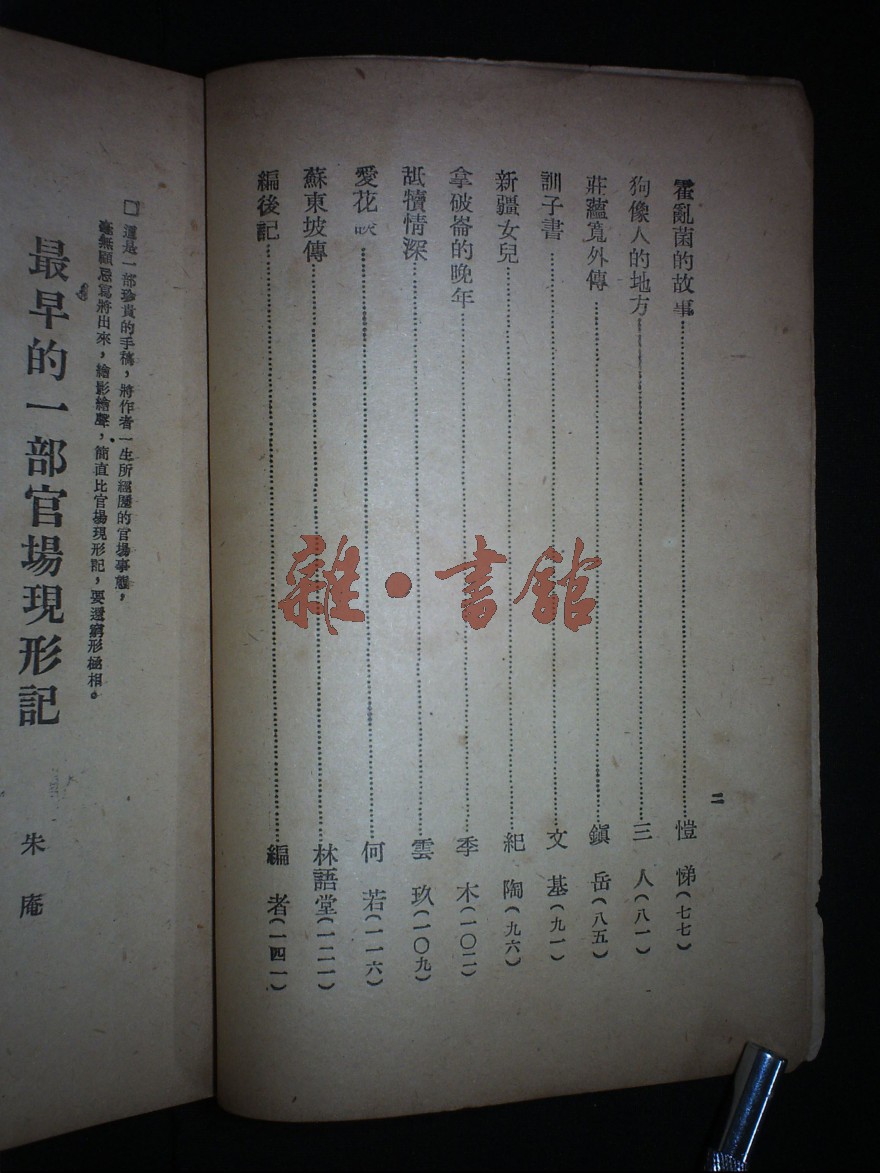 二
霍亂菌的故事……愷悌(七七)
狗像人的地方……三人(八一)
莊蘊寬外傳……鎭岳(八五)
訓子書……文基(九一)
新疆女兒……紀陶(九六)
拿破崙的晚年……季木(一〇二)
舐犢情深……雲玖(一〇九)
愛花……何若(一一六)
蘇東坡傳……林語堂(一二一)
編後記……編者(一四一)
□這是一部珍貴的手稿，將作者一生所經歷的官場事態，
毫無顧忌寫將出來，繪影繪聲，簡直比官場現形記，要還窮形極相。
最早的一部官場現形記
朱庵
雜·書館